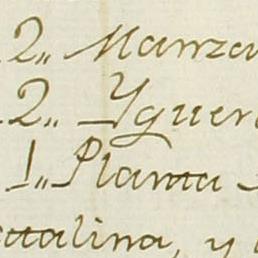 2,, Manza
2,, Yguer
1,, Planta
talina, y